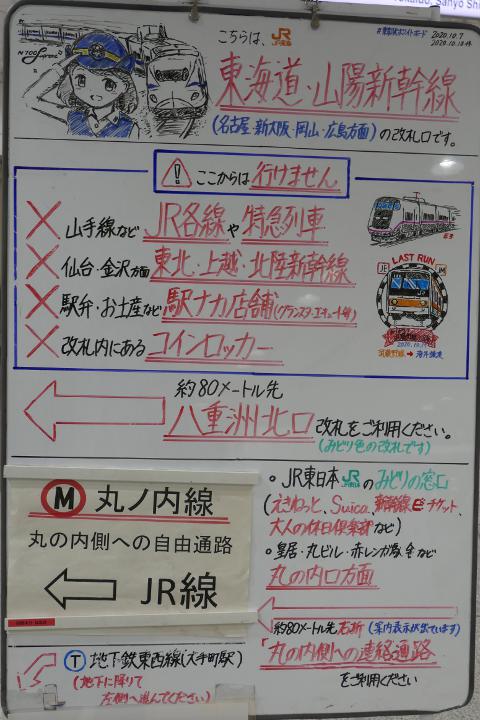 こちらは、JR
#東京駅ホワイトボード
2020.10.7
2020.10.18作
N700 Supreme
東海道・山陽新幹線
(名古屋・新大阪・岡山・広島方面)の改札口です。
ここからは行けません
× 山手線など JR各線や特急列車
× 仙台・金沢方面 東北・上越・北陸新幹線
× 駅弁・お土産など 駅ナカ店舗(グランスタ・エキュート等)
× 改札内にある コインロッカー
E3
LAST RUN
武蔵野線→海外譲渡
約80メートル先
八重洲北口 改札をご利用ください。
(みどり色の改札です)
M 丸ノ内線
丸の内側への自由通路
← JR線
・JR東日本 JR のみどりの窓口
(えきねっと、Suica、新幹線eチケット、
大人の休日倶楽部など)
・皇居・丸ビル・赤レンガ駅舎など
丸の内口方面
約80メートル先右折(案内表示が出ています)
「丸の内側への連絡通路
をご利用ください
T 地下鉄東西線(大手町駅)
(地下に降りて
左側へ進んでください)